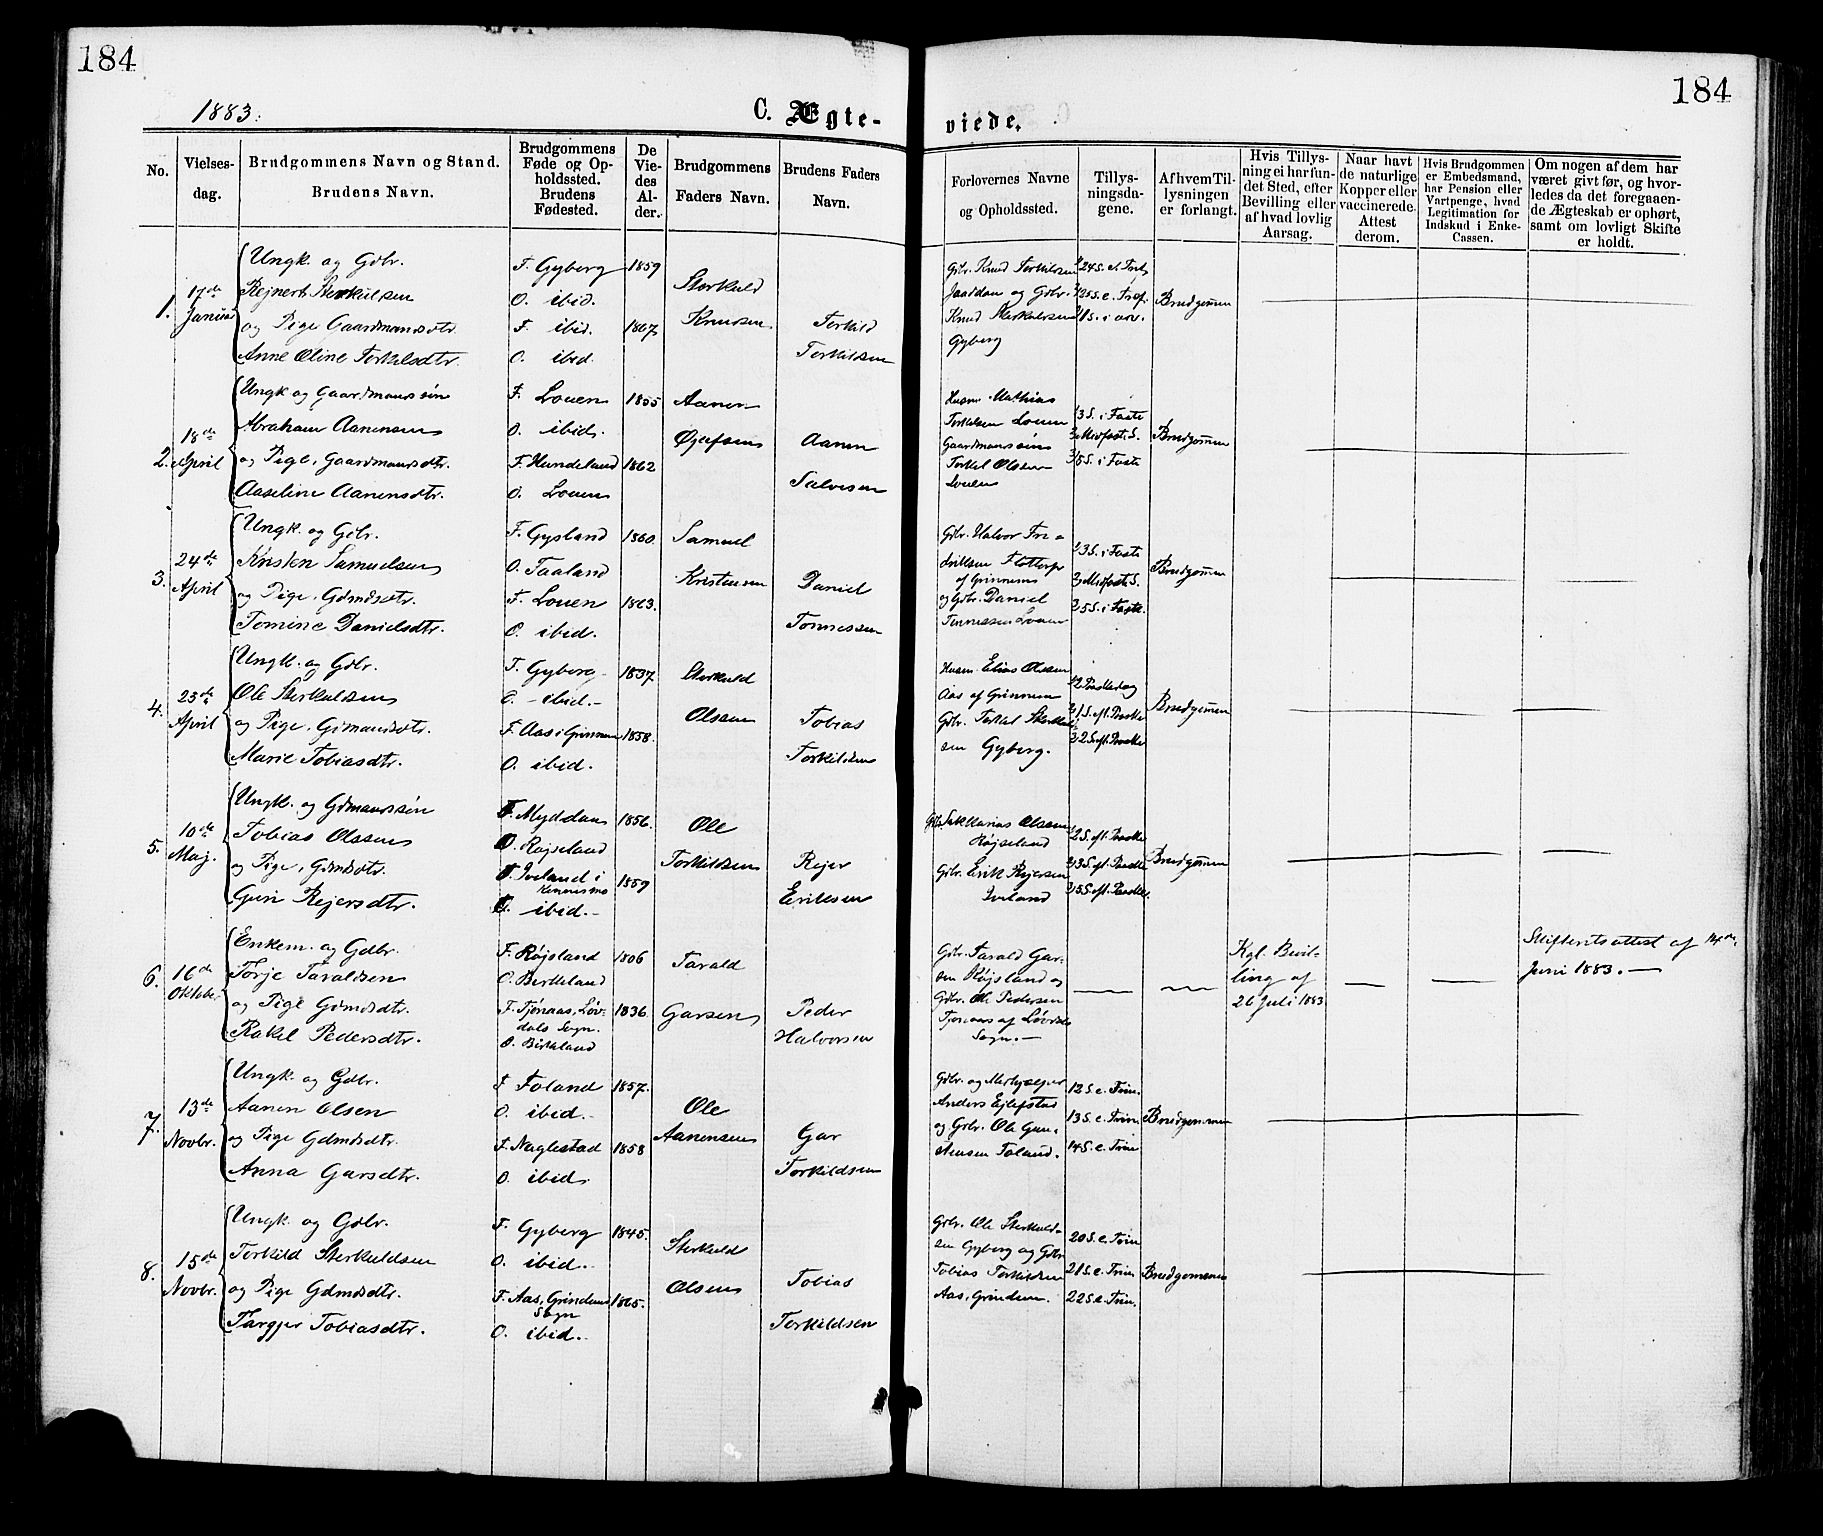 184
184
1883.
C. Ægte-
viede.
No.
Vielses-
dag.
Brudgommens Navn og Stand.
Brudens Navn.
Brudgommens
Føde og Op-
holdssted.
Brudens
Fødested.
De
Vie-
des
Al-
der.
Brudgommens
Faders Navn.
Brudens Faders
Navn.
Forlovernes Navne
og Opholdssted.
Tillys-
ningsda-
gene.
Af hvem Til-
lysningen
er forlangt.
Hvis Tillys-
ning ei har fun-
det Sted, efter
Bevilling eller
af hvad lovlig
Aarsag.
Naar havt
de naturlige
Kopper eller
vaccinerede.
Attest
derom.
Hvis Brudgommen
er Embedsmand,
har Pension eller
Vartpenge, hvad
Legitimation for
Indskud i Enke-
Cassen.
Om nogen af dem har
været givt før, og hvor-
ledes da det foregaaen-
de Ægteskab er ophørt,
samt om lovligt Skifte
er holdt.
1.
17de
Januar
Ungk. og Gdbr.
Rejnert Sterkulsen
og Pige Gaardmansdtr.
Anne Oline Torkilsdtr.
F. Gyberg
O. ibid.
F. ibid.
O. ibid.
1859
1867
Sterkuld
Knutsen
Torkild
Torkildsen
Gdbr. Knud Torkildsen
og Gdbr.
Knud Sterkuldsen
Gyberg
Brudgommen
2.
18de
April
Ungk og Gaardmanssøn
Abraham Aanensen
og Pige, Gaardmansdtr.
Aaseline Aanensdtr.
F. Louen
O. ibid.
F. Hundeland
O. Louen
1855
1862
Aanen
Øjufsen
Aanen
Salvesen
Husm. Mathias
Torkelsen Louen
Gaardmanssøn
Torkel Olssen
Louen
3 S. i Faste
Midfaste S.
5 S. i Faste
Brudgommen
3.
24de
April
Ungk. og Gdbr.
Kristen Samuelsen
og Pige, Gdmdsdtr.
Tomine Danielsdtr.
F. Gysland
O. Taaland
F. Louen
O. ibid.
1860.
1863.
Samuel
Kristensen
Daniel
Tønnessen
Gdbr. Halvor Fre-
driksen Flottorp
af Grinnems
og Gdbr. Daniel
Tønnessen Louen
3 S. i Faste
Midfaste S.
5 S. i Faste.
Brudgommen
4.
23de
April
Ungk. og Gdbr.
Ole Sterkulsen
og Pige, Gdmansdtr.
Marie Tobiasdtr.
F. Gyberg
O. - ibid. -
F. Aas i Grinnem
O. ibid.
1837.
1858.
Sterkuld
Olssen
Tobias
Torkildsen
Husm. Elias Olssen
Aas af Grinnem
Gdbr. Torkel Sterkuld-
sen Gyberg.
2 Paaskedag
1 S. eft. Paaske
2 S. eft. Paaske
Brudgommen
5.
10de
Maj.
Ungk. og Gdmanssøn
Tobias Olssen
og Pige, Gdmdsdtr.
Guri Rejersdtr.
F. Myddan
O. Røjseland
F. Iveland i
Hennismo
O. ibid. -
1856.
1859
Ole
Torkildsen
Rejer
Eriksen
Gdbr. Sakkarias Olssen
Røjseland
Gdbr. Erik Rejersen
Iveland
2 S. eft. Paaske
3 S. eft. Paaske
5 S. eft. Paaske.
Brudgommen
6.
16de
Oktober
Enkem. og Gdbr.
Torje Taraldsen
og Pige Gdmdsdtr.
Rakel Pedersdtr.
F. Røjsland
O. Birkeland
F. Tjønaas, Løv-
dals Sogn.
O. Birkeland
1806
1836.
Tarald
Garsen
Peder
Halvorsen
Gdbr. Tarald Gar-
sen Røjsland og
Gdbr. Ole Pedersen
Tjønaas af Løvdals
Sogn. -
Kgl. Bevil-
ling af
26 Juli 1883
Skifteretsattest af 14de
Juni 1883. -
7.
13de
Novbr.
Ungk. og Gdbr.
Aanen Olsen
og Pige Gdmdsdtr.
Anna Garsdtr.
F. Foland
O. ibid. -
F. Naglestad
O. ibid.
1857.
1858
Ole
Aanensen
Gar
Torkildsen
Gdbr. og Medhjelper
Anders Ejlefstad
og Grbr. Ole Gun-
stensen Foland.
12 S. e. Trin.
13 S. e. Trin
14 S. e. Trin
Brudgommen
8.
15de
Novbr.
Ungk. og Gdbr.
Torkild Sterkuldsen
og Pige Gdmdsdtr.
Targjer Tobiasdtr.
F. Gyberg
O. ibid. -
F. Aas, Grindem
Sogn
O. ibid. -
1845.
1865.
Sterkuld
Olsen
Tobias
Torkildsen
Gdbr. Ole Sterkuld-
sen Gyberg og Gdbr
Tobias Torkildsen
Aas, Grindem.
20 S. e. Trin
21 S. e. Trin
22 S. e. Trin.
Brudgommen